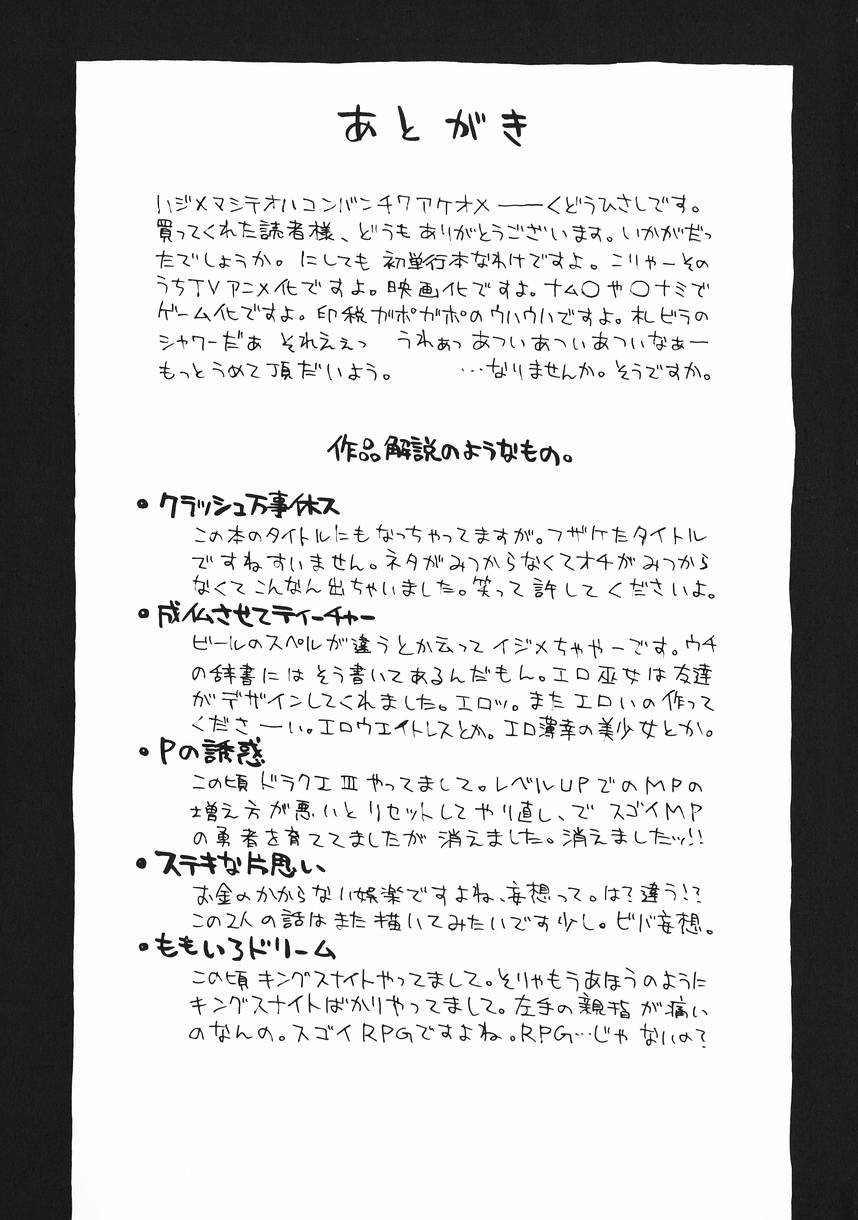 あとがき
ハジメマシテオハコンバンチワアケオメ――くどうひさしです。
買ってくれた読者様、どうもありがとうございます。いかがだっ
たでしょうか。にしても初単行本なわけですよ。こりゃーその
うちTVアニメ化ですよ。映画化ですよ。ナム〇や〇ナミで
ゲーム化ですよ。印税ガポガポのウハウハですよ。札ビラの
シャワーだぁ それえぇっ うわぁっ あついあついあついなぁー
もっとうめて頂だいよう。 …なりませんか。そうですか。
作品解説のようなもの。
・クラッシュ万事休ス
この本のタイトルにもなっちゃってますが。フザケたタイトル
ですねすいません。ネタがみつからなくてオチがみつから
なくてこんなん出ちゃいました。笑って許してくださいよ。
・成仏させてティーチャー
ビールのスペルが違うとか云ってイジメちゃやーです。ウチ
の辞書にはそう書いてあるんだもん。エロ巫女は友達
がデザインしてくれました。エロッ。またエロいの作って
くださーい。エロウエイトレスとか。エロ薄幸の美少女とか。
・Pの誘惑
この頃ドラクエⅢやってまして。レベルUPでのMPの
増え方が悪いとリセットしてやり直し、でスゴイMP
の勇者を育ててましたが消えました。消えましたッ!!
・ステキな片思い
お金のかからない娯楽ですよね、妄想って。は?違う!?
この2人の話はまた描いてみたいです少し。ビバ妄想。
・ももいろドリーム
この頃キングスナイトやってまして。そりゃもうあほうのように
キングスナイトばかりやってまして。左手の親指が痛い
のなんの。スゴイRPGですよね。RPG…じゃないの?